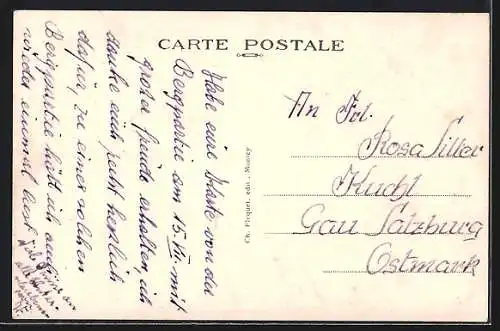 CARTE POSTALE
Habe eure Karte von der
Bergpartie am 15. VII. mit
großer Freude erhalten, ich
danke euch recht herzlich
dafür, zu einer solchen
Bergpartie hätt ich auch
wieder einmal Lust
Viele Grüße an
alle
Ch. Fluquet, edit. - Mussey
An Frl.
Rosa Siller
Kuchl
Gau Salzburg
Ostmark